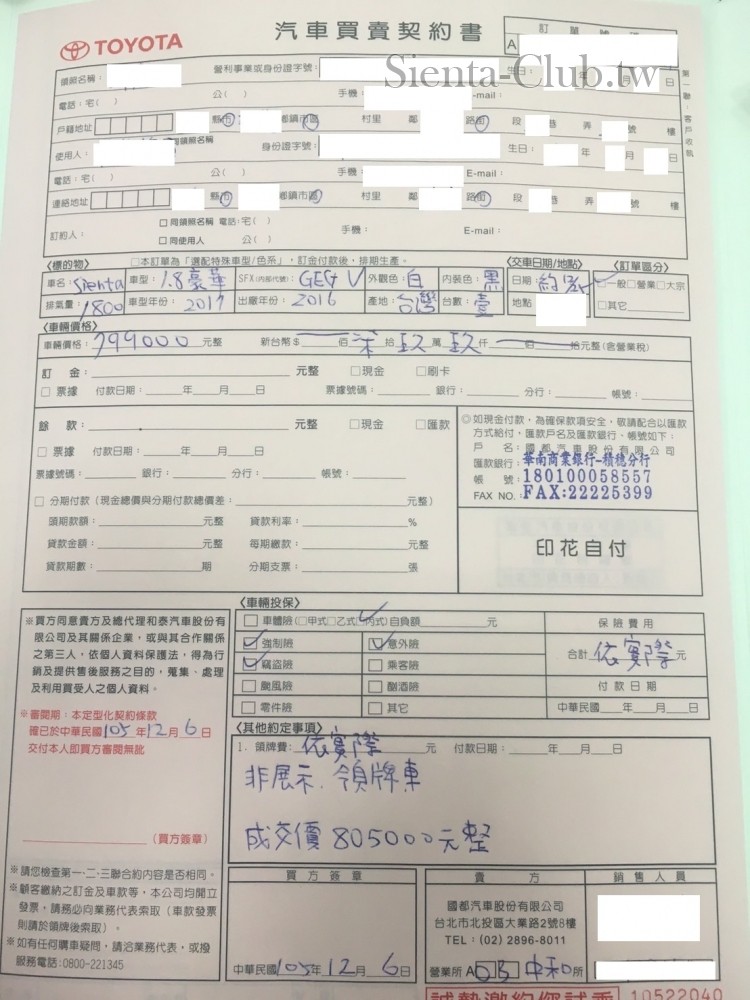 TOYOTA
汽車買賣契約書
訂單號碼
A
Sienta-Club.tw
第一聯:客戶收執
領照名稱: 營利事業或身份證字號: 生日: 年 月 日
電話:宅( ) 公( ) 手機: E-mail:
戶籍地址 縣市 鄉鎮市區 村里 鄰 路街 段 巷 弄 號 樓
同領照名稱
使用人: 身份證字號: 生日: 年 月 日
電話:宅( ) 公( ) 手機 E-mail:
連絡地址 縣市 鄉鎮市區 村里 鄰 路街 段 巷 弄 號 樓
訂約人: □同領照名稱 電話:宅( ) 手機: E-mail:
□同使用人 公( )
〈標的物〉 □本訂單為「選配特殊車型/色系」,訂金付款後,排期生產。 〈交車日期/地點〉 〈訂單區分〉
車名:Sienta 車型:1.8豪華 SFX(內部代號): 外觀色:白 內裝色:黑 日期: □一般□營業□大宗
排氣量:1800 車型年份:2017 出廠年份:2016 產地:台灣 台數:壹 地點 □其它
〈車輛價格〉
車輛價格:799000元整 新台幣$ 佰柒拾玖萬玖仟 佰 拾元整(含營業稅)
訂金: 元整 □現金 □刷卡
□票據 付款日期: 年 月 日 票據號碼: 銀行: 分行: 帳號:
餘款: 元整 □現金 □匯款
□票據 付款日期: 年 月 日
票據號碼: 銀行: 分行: 帳號:
□分期付款(現金總價與分期付款總價差: 元整)
頭期款額: 元整 貸款利率: %
貸款金額: 元整 每期繳款: 元整
貸款期數: 期 分期支票: 張
◎如現金付款,為確保款項安全,敬請配合以匯款
方式給付,匯款戶名及匯款銀行、帳號如下:
戶名:國都汽車股份有限公司
匯款銀行:華南商業銀行-積穗分行
帳號:180100058557
FAX NO. FAX:22225399
印花自付
※買方同意貴方及總代理和泰汽車股份有
限公司及其關係企業,或與其合作關係
之第三人,依個人資料保護法,得為行
銷及提供售後服務之目的,蒐集、處理
及利用買受人之個人資料。
※審閱期:本定型化契約條款
確已於中華民國105年12月6日
交付本人即買方審閱無訛
(買方簽章)
〈車輛投保〉
□車體險(□甲式□乙式□丙式)自負額 元 保險費用
□強制險 □意外險 合計依實際元
□竊盜險 □乘客險
□颱風險 □酗酒險 付款日期
□零件險 □其它 中華民國 年 月 日
〈其他約定事項〉
1. 領牌費:依實際元 付款日期: 年 月 日
非展示、領牌車
成交價805000元整
※請您檢查第一、二、三聯合約內容是否相同。
※顧客繳納之訂金及車款等,本公司均開立
發票,請務必向業務代表索取(車款發票
則請於領牌後索取)。
※如有任何購車疑問,請洽業務代表,或撥
服務電話:0800-221345
買方簽章
中華民國105年12月6日
賣方
國都汽車股份有限公司
台北市北投區大業路2號8樓
TEL:(02) 2896-8011
營業所 中和所
銷售人員
誠摯邀約您試乘
10522040